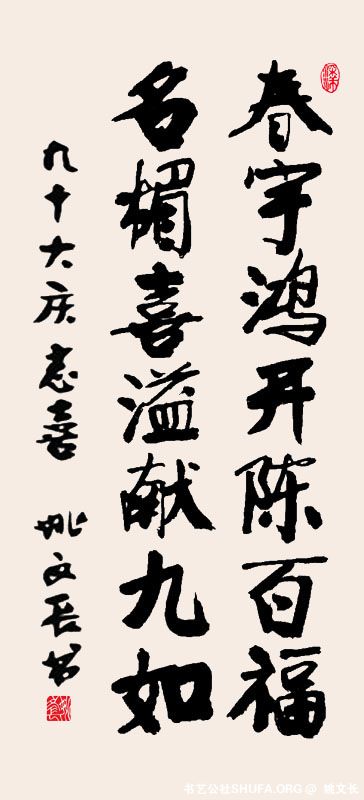 春宇鸿开陈百福
名楣喜溢献九如
九十大庆志喜 姚文长书
书艺公社SHUFA.ORG @ 姚文长